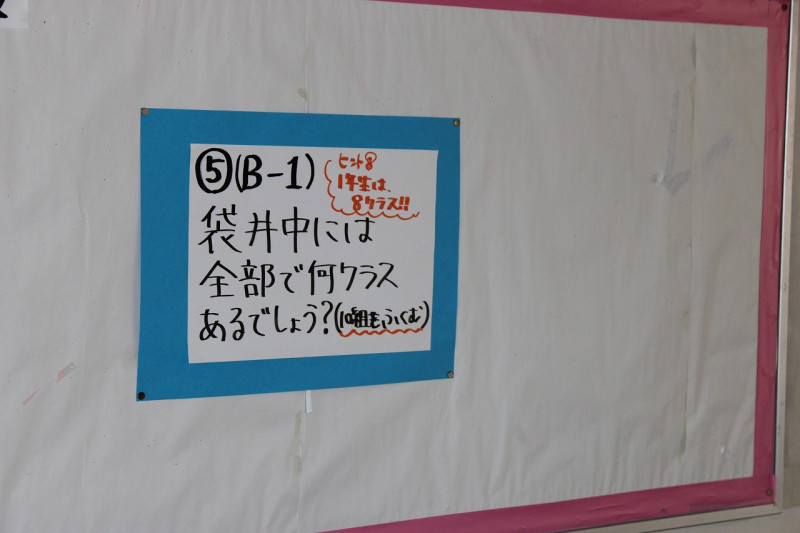 ⑤(B-1)
ヒント⑧
1年生は、
8クラス!!
袋井中には
全部で何クラス
あるでしょう?(10組もふくむ)